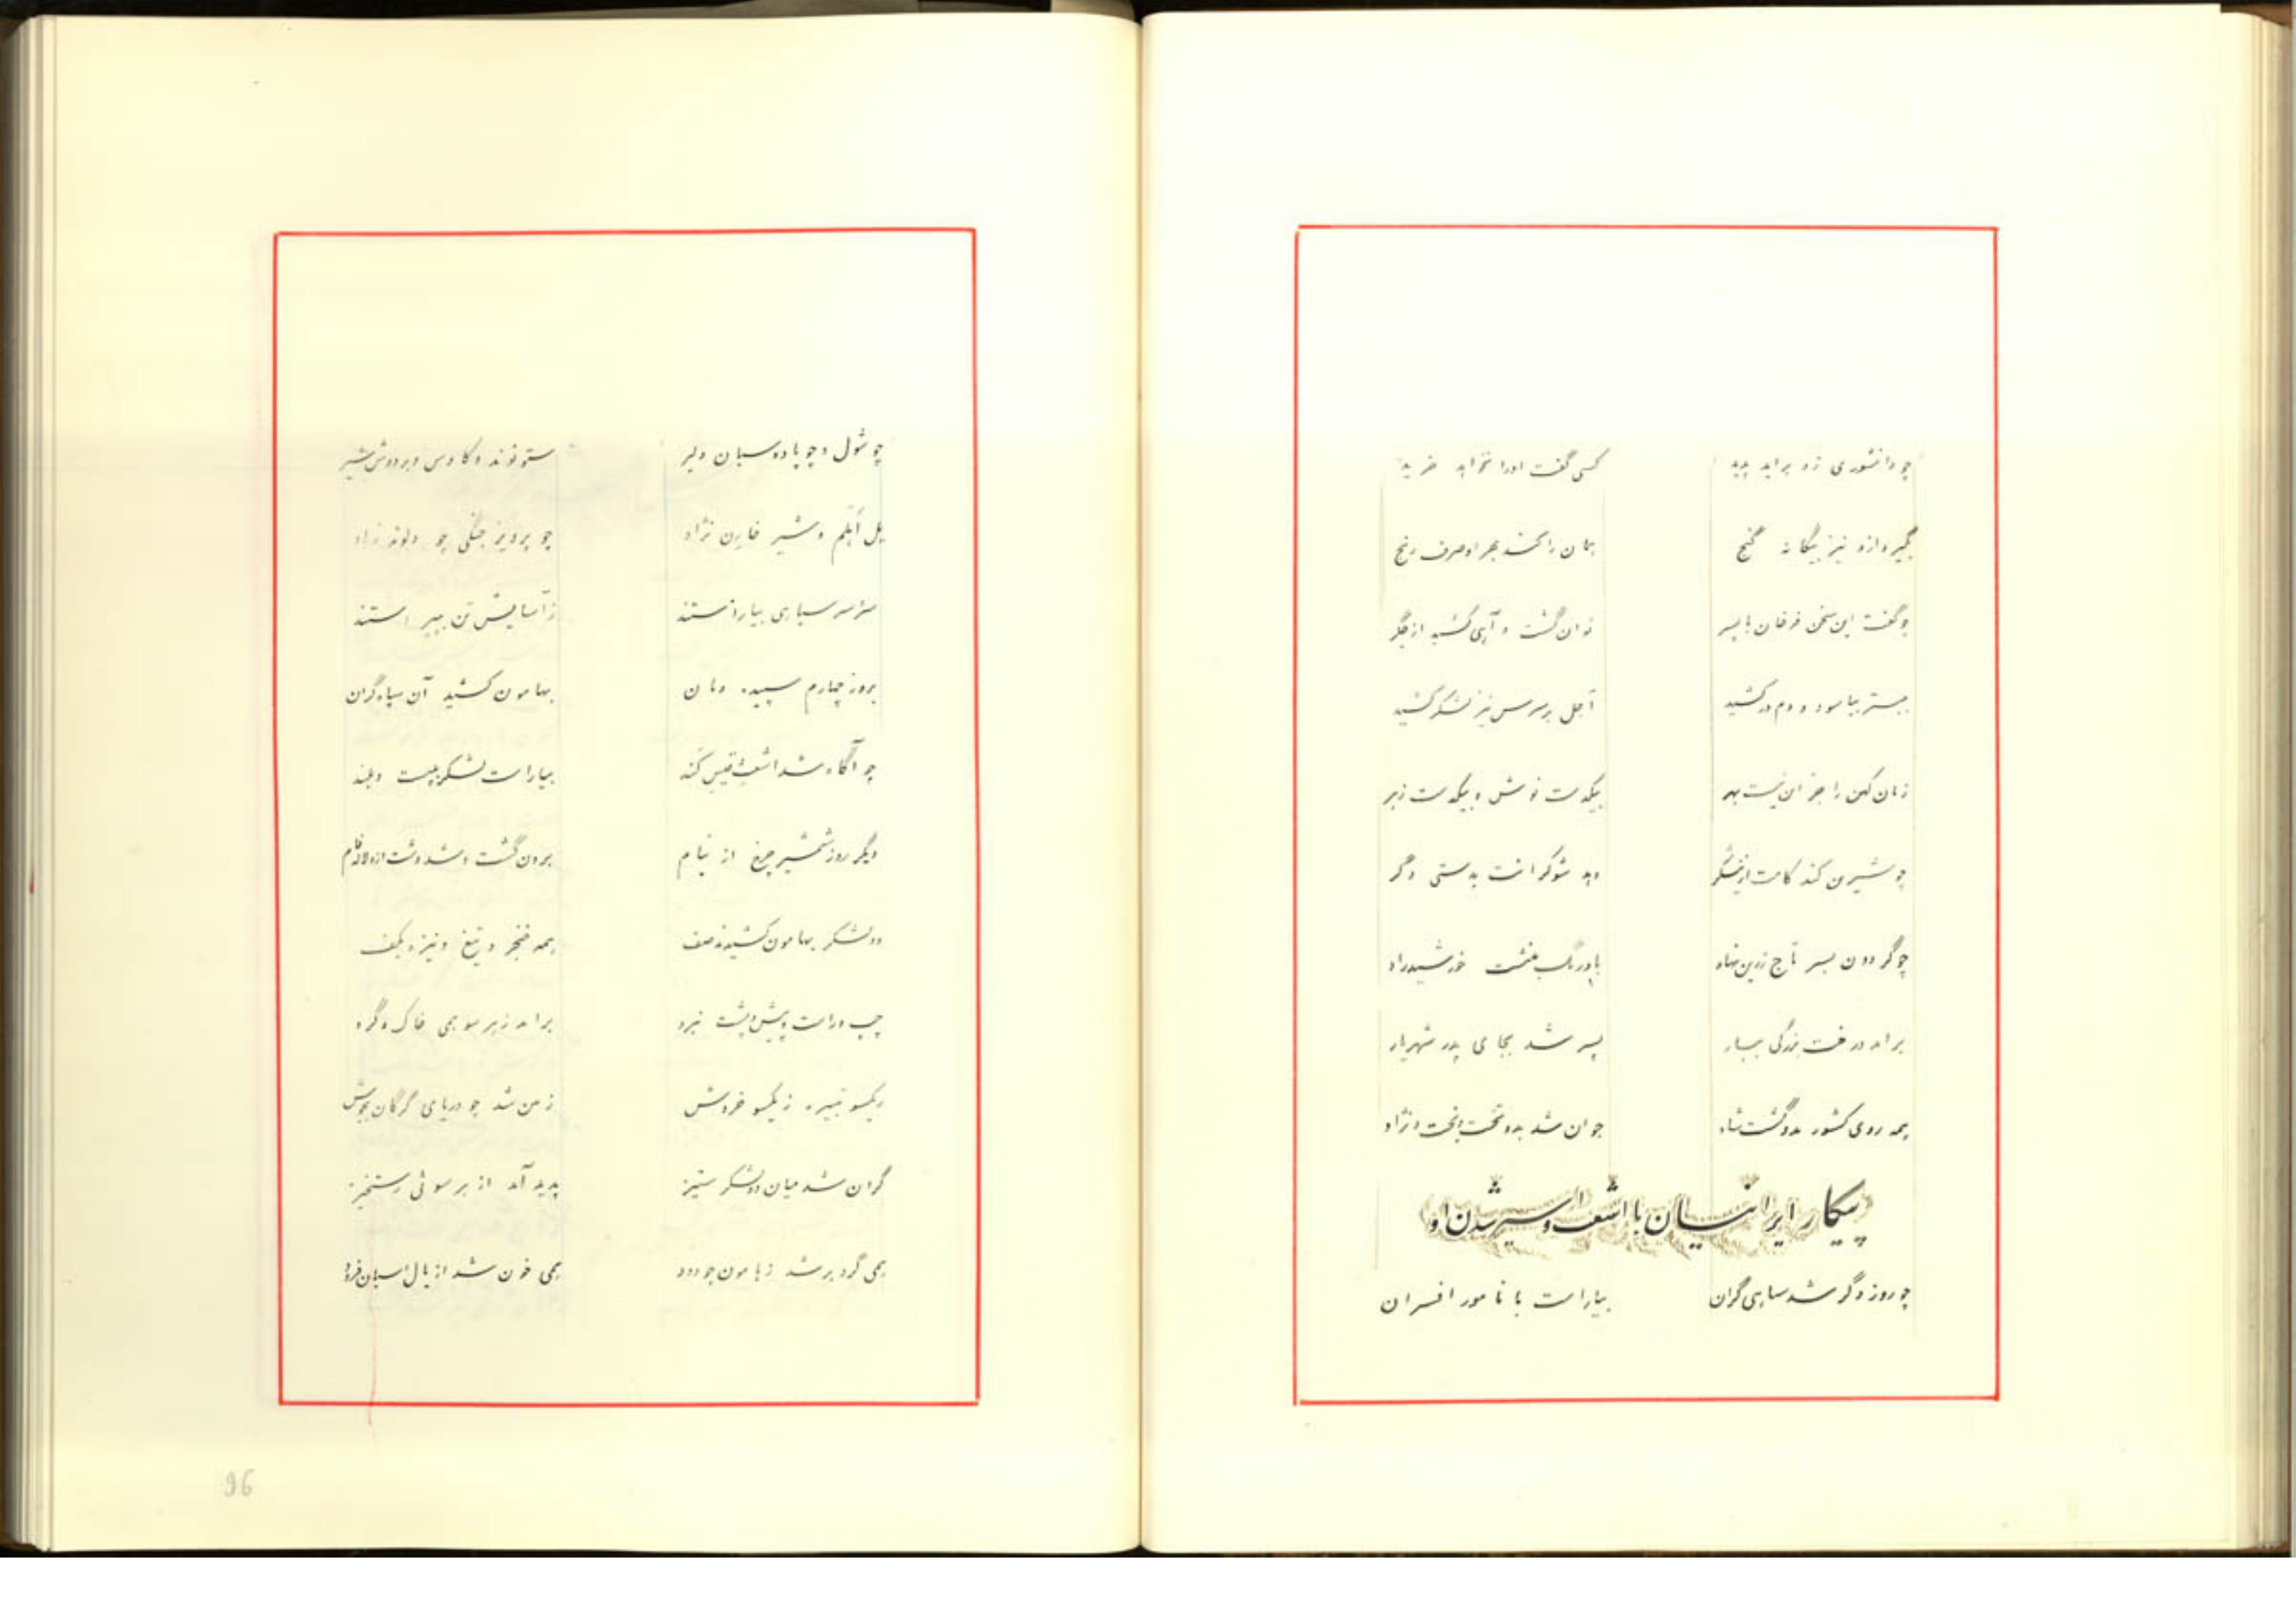 چو دانشوری زد براید پدید کسی گفت اورا نخواهد خرید
بگیرد ازو نیز بیگانه گنج همان را کشد بهر او صرف رنج
چو گفت این سخن فرخان با پسر نوان گشت و آهی کشید از جگر
ببستر بیاسود و دم درکشید اجل بر سرش نیز لشکر کشید
زمان کهن را جز این نیست بهر بیکدست نوش و بیکدست زهر
چو شیرین کند کامت از نیشکر دهد شوکرانت بدستی دگر
چو گردون بسر تاج زرین نهاد باورنگ بنشست خورشیدراد
برامد درخت بزرگی ببار پسر شد بجای پدر شهریار
همه روی کشور بدو گشت شاد جوان شد بدو تخت و بخت و نژاد
پیکار ایرانیسان با اشعث و اسیر شدن او
چو روز دگر شد سپاهی گران بیاراست با نامور افسران
چو شول و چو پادوسبان دلیر ستوند و کاوس و بردوش شیر
یل آهلم و شیر قارن نژاد چو پرویز جنگی چو دلوند راد
سراسر سپاهی بیاراستند ز آسایش تن بپیراستند
بروز چهارم سپیده دمان بهامون کشید آن سپاه گران
چو آگاه شد اشعث قیس کند بیاراست لشکر بپست و بلند
دیگر روز شمشیر چرخ از نیام برون گشت و شد دشت ازو لاله فام
دو لشکر بهامون کشیدند صف همه خنجر و تیغ و نیزه بکف
چپ و راست و پیش و پشت نبرد برامد ز هر سو همی خاک و گرد
ز یکسو تبیره ز یکسو خروش زمین شد چو دریای گرگان بجوش
گران شد میان دو لشکر ستیز پدید آمد از هر سوئی رستخیز
همی گرد برشد ز هامون چو دود همی خون شد از یال اسبان فرود
96